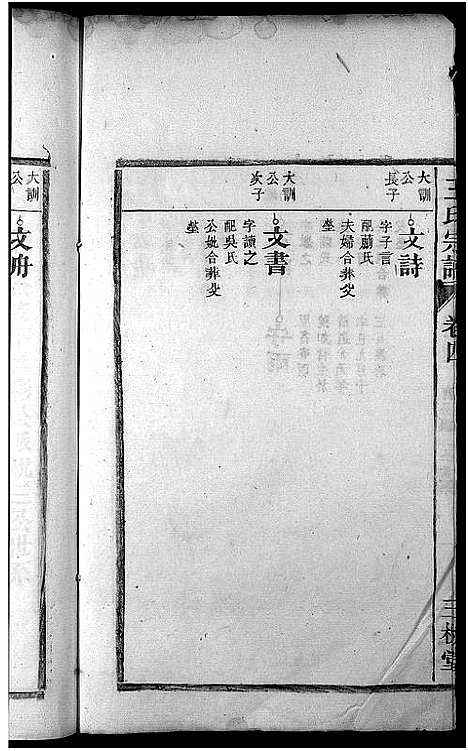 王氏宗譜
卷四
三槐堂
大訓
公
長子
文詩
字子言
配蕭氏
夫婦合葬父
塋
大訓
公
次子
文書
字讀之
配吳氏
公妣合葬父
塋
大訓
公
文冊